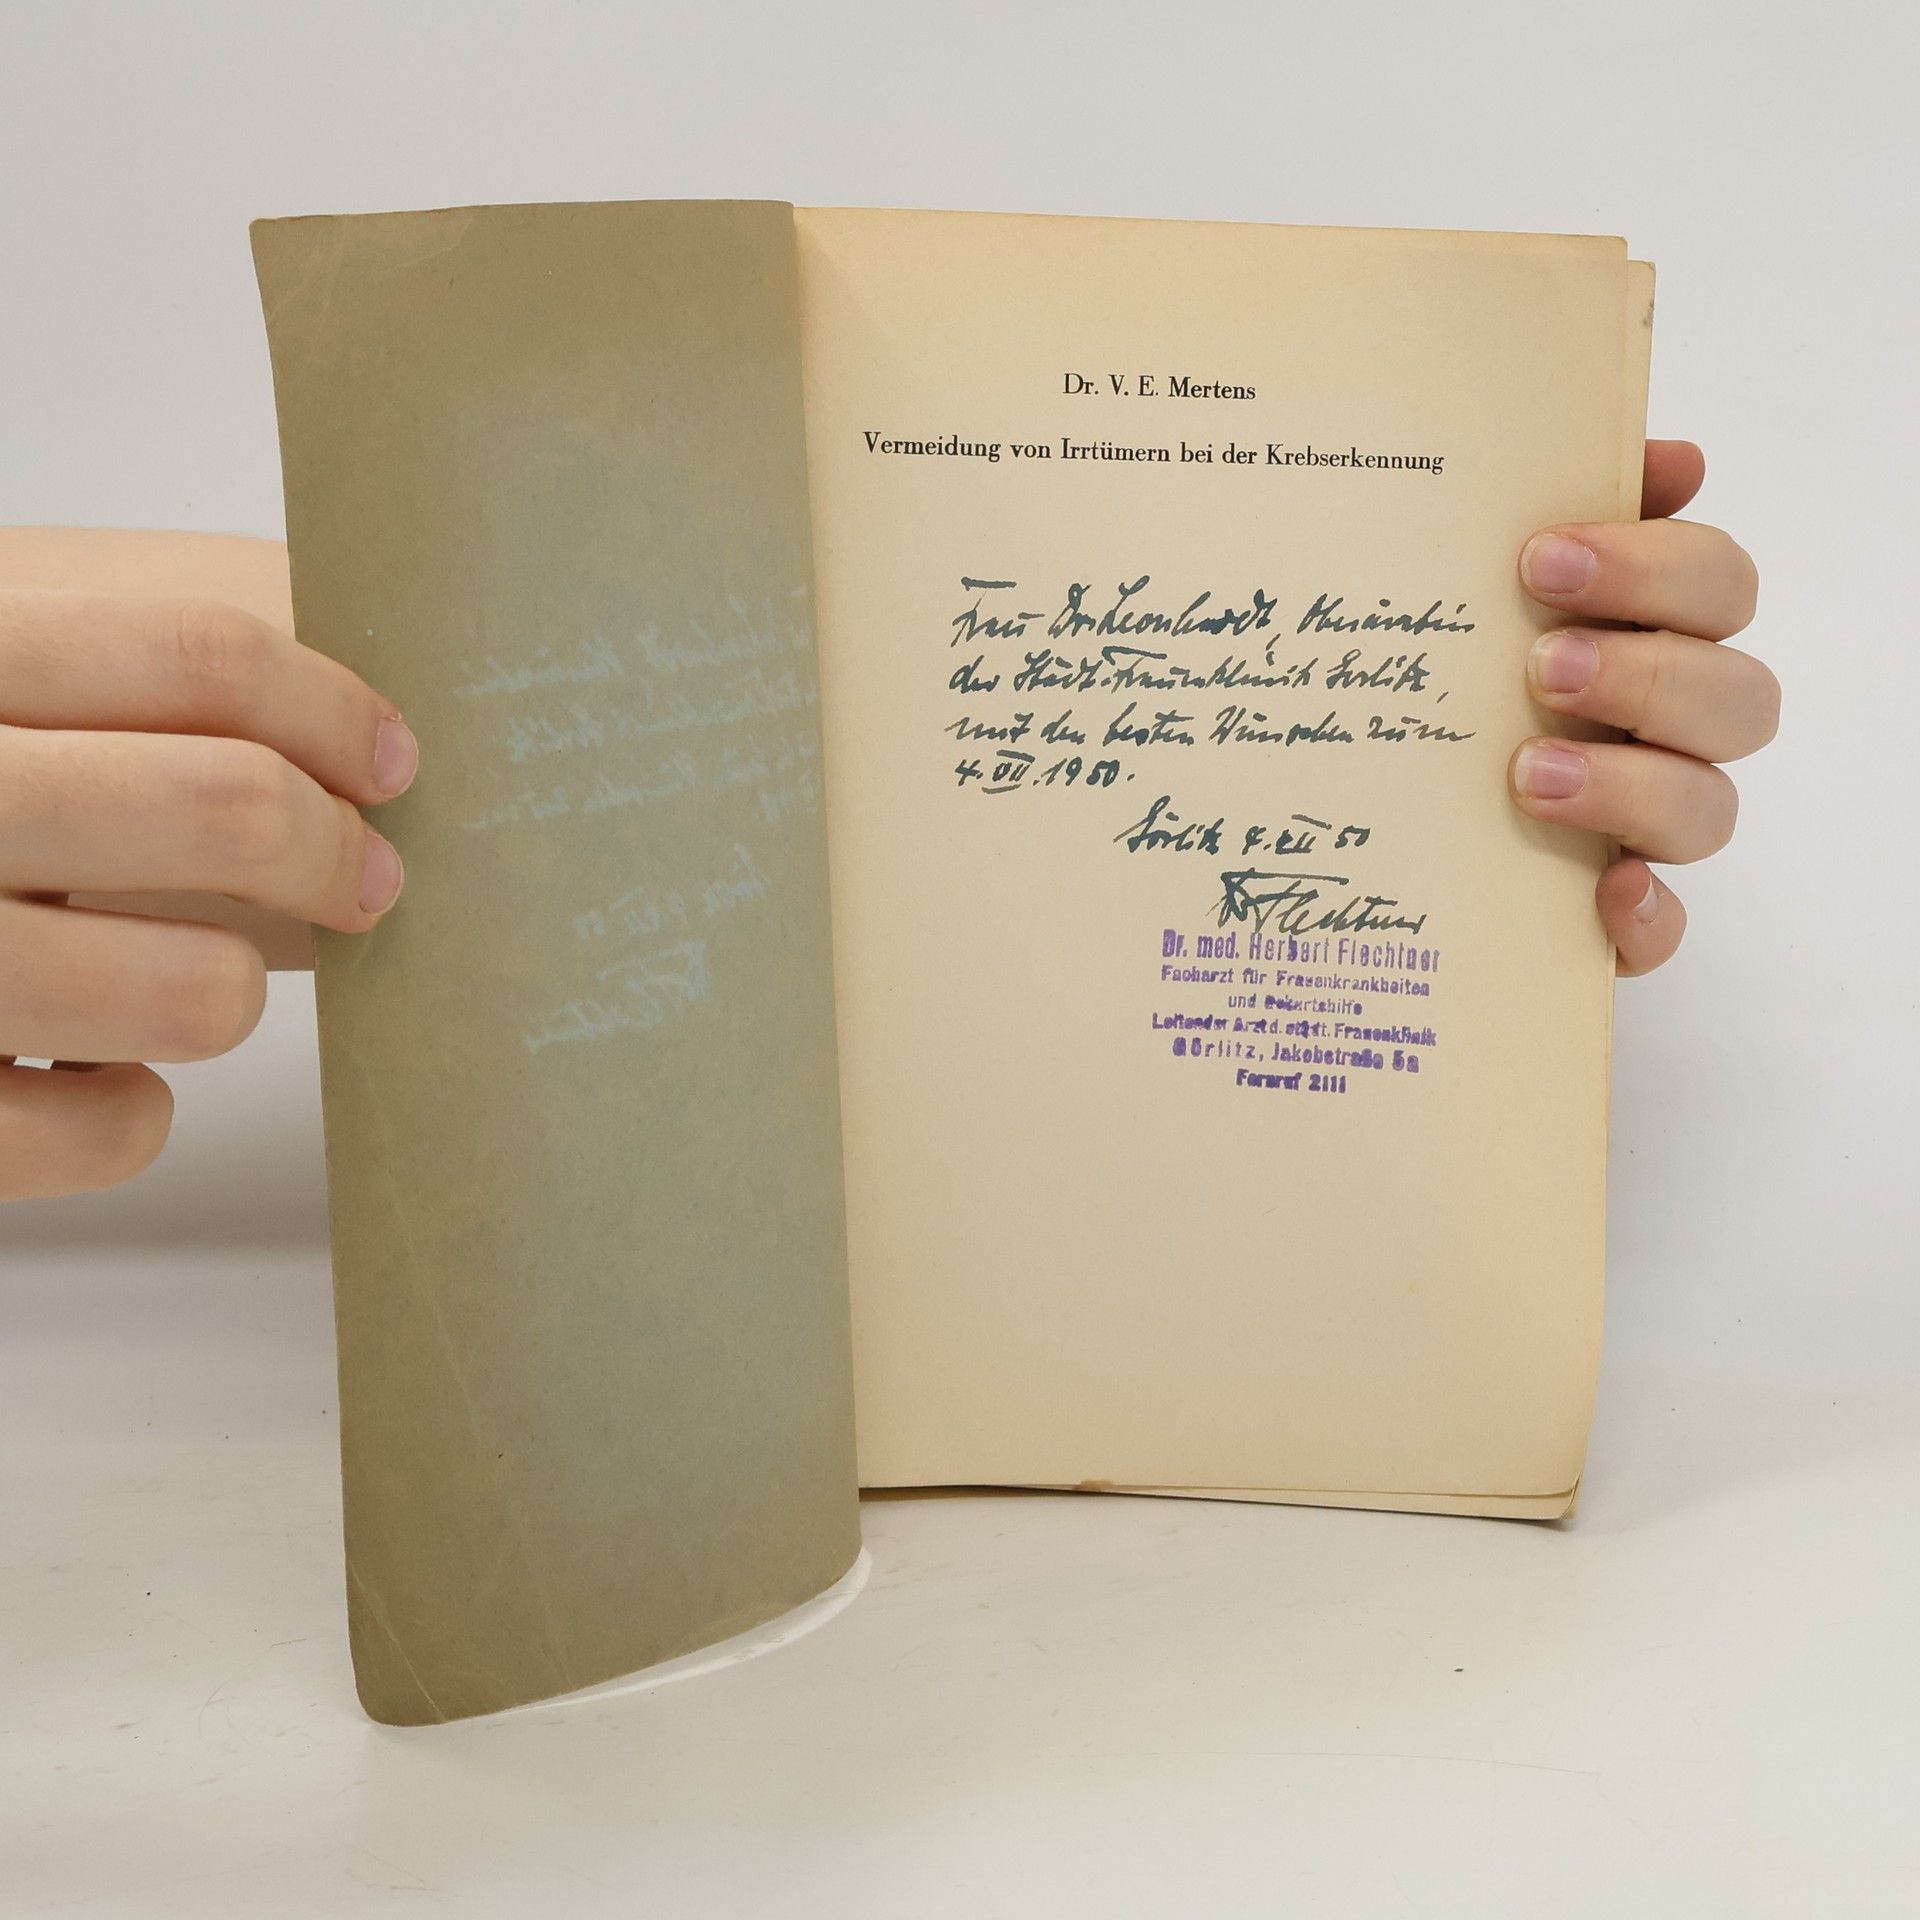 Dr. V. E. Mertens
Vermeidung von Irrtümern bei der Krebserkennung
Frau Dr. Leonhardt, Oberärztin
der Städt. Frauenklinik Görlitz,
mit den besten Wünschen zum
4. VII. 1950.
Görlitz 4. VII 50
Dr Flechtner
Dr. med. Herbert Flechtner
Facharzt für Frauenkrankheiten
und Geburtshilfe
Leitender Arzt d. städt. Frauenklinik
Görlitz, Jakobstraße 5a
Fernruf 2111